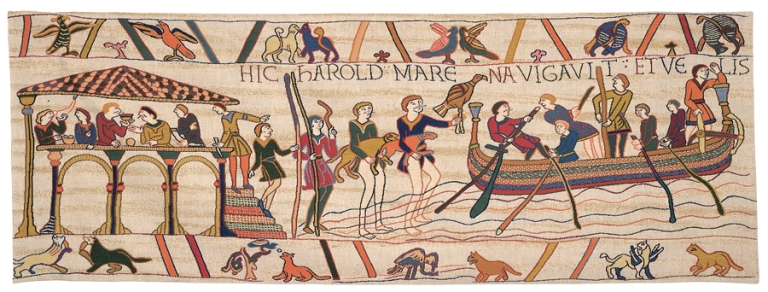 HIC hAROLD: MARE NAVIGAVIT: ET VE LIS